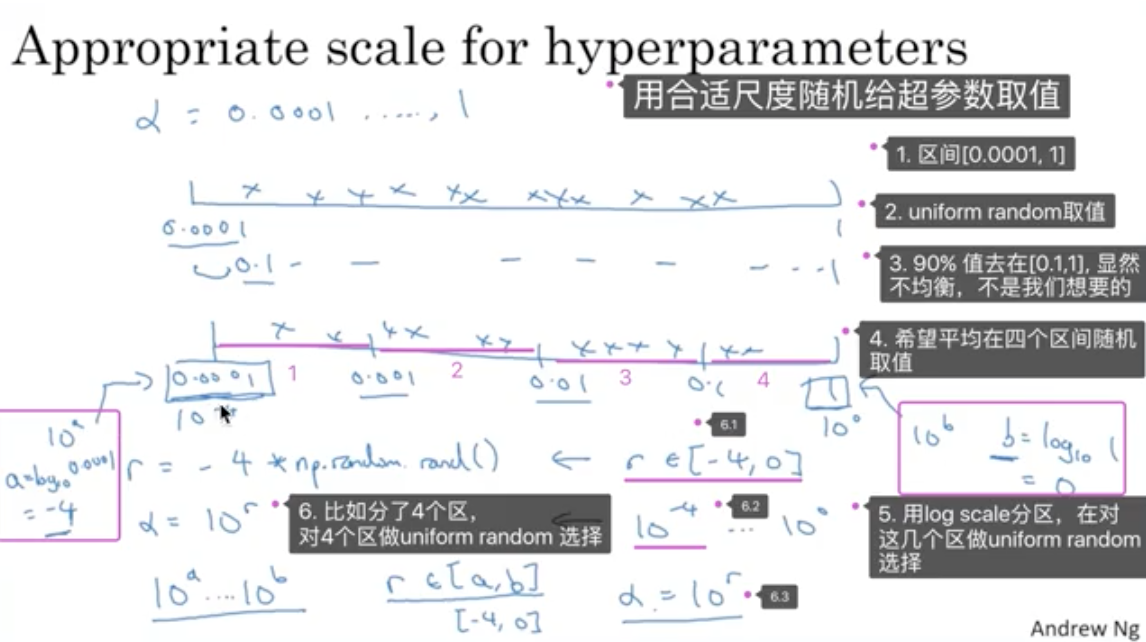 Appropriate scale for hyperparameters
用合适尺度随机给超参数取值
α = 0.0001 ....., 1
1. 区间[0.0001, 1]
2. uniform random取值
0.0001 1
0.1
3. 90% 值去在[0.1,1], 显然
不均衡，不是我们想要的
4. 希望平均在四个区间随机
取值
0.0001 1 0.001 2 0.01 3 0.1 4 1
10⁰
6.1
10ᵃ
a=log₁₀0.0001
= -4
r = -4 * np.random.rand() ← r ∈ [-4, 0]
10ᵇ b = log₁₀ 1
= 0
α = 10ʳ
6. 比如分了4个区，
对4个区做uniform random 选择
6.2
10⁻⁴ ... 10⁰
5. 用log scale分区，在对
这几个区做uniform random
选择
10ᵃ ... 10ᵇ r ∈ [a, b] α = 10ʳ
6.3
[-4, 0]
Andrew Ng